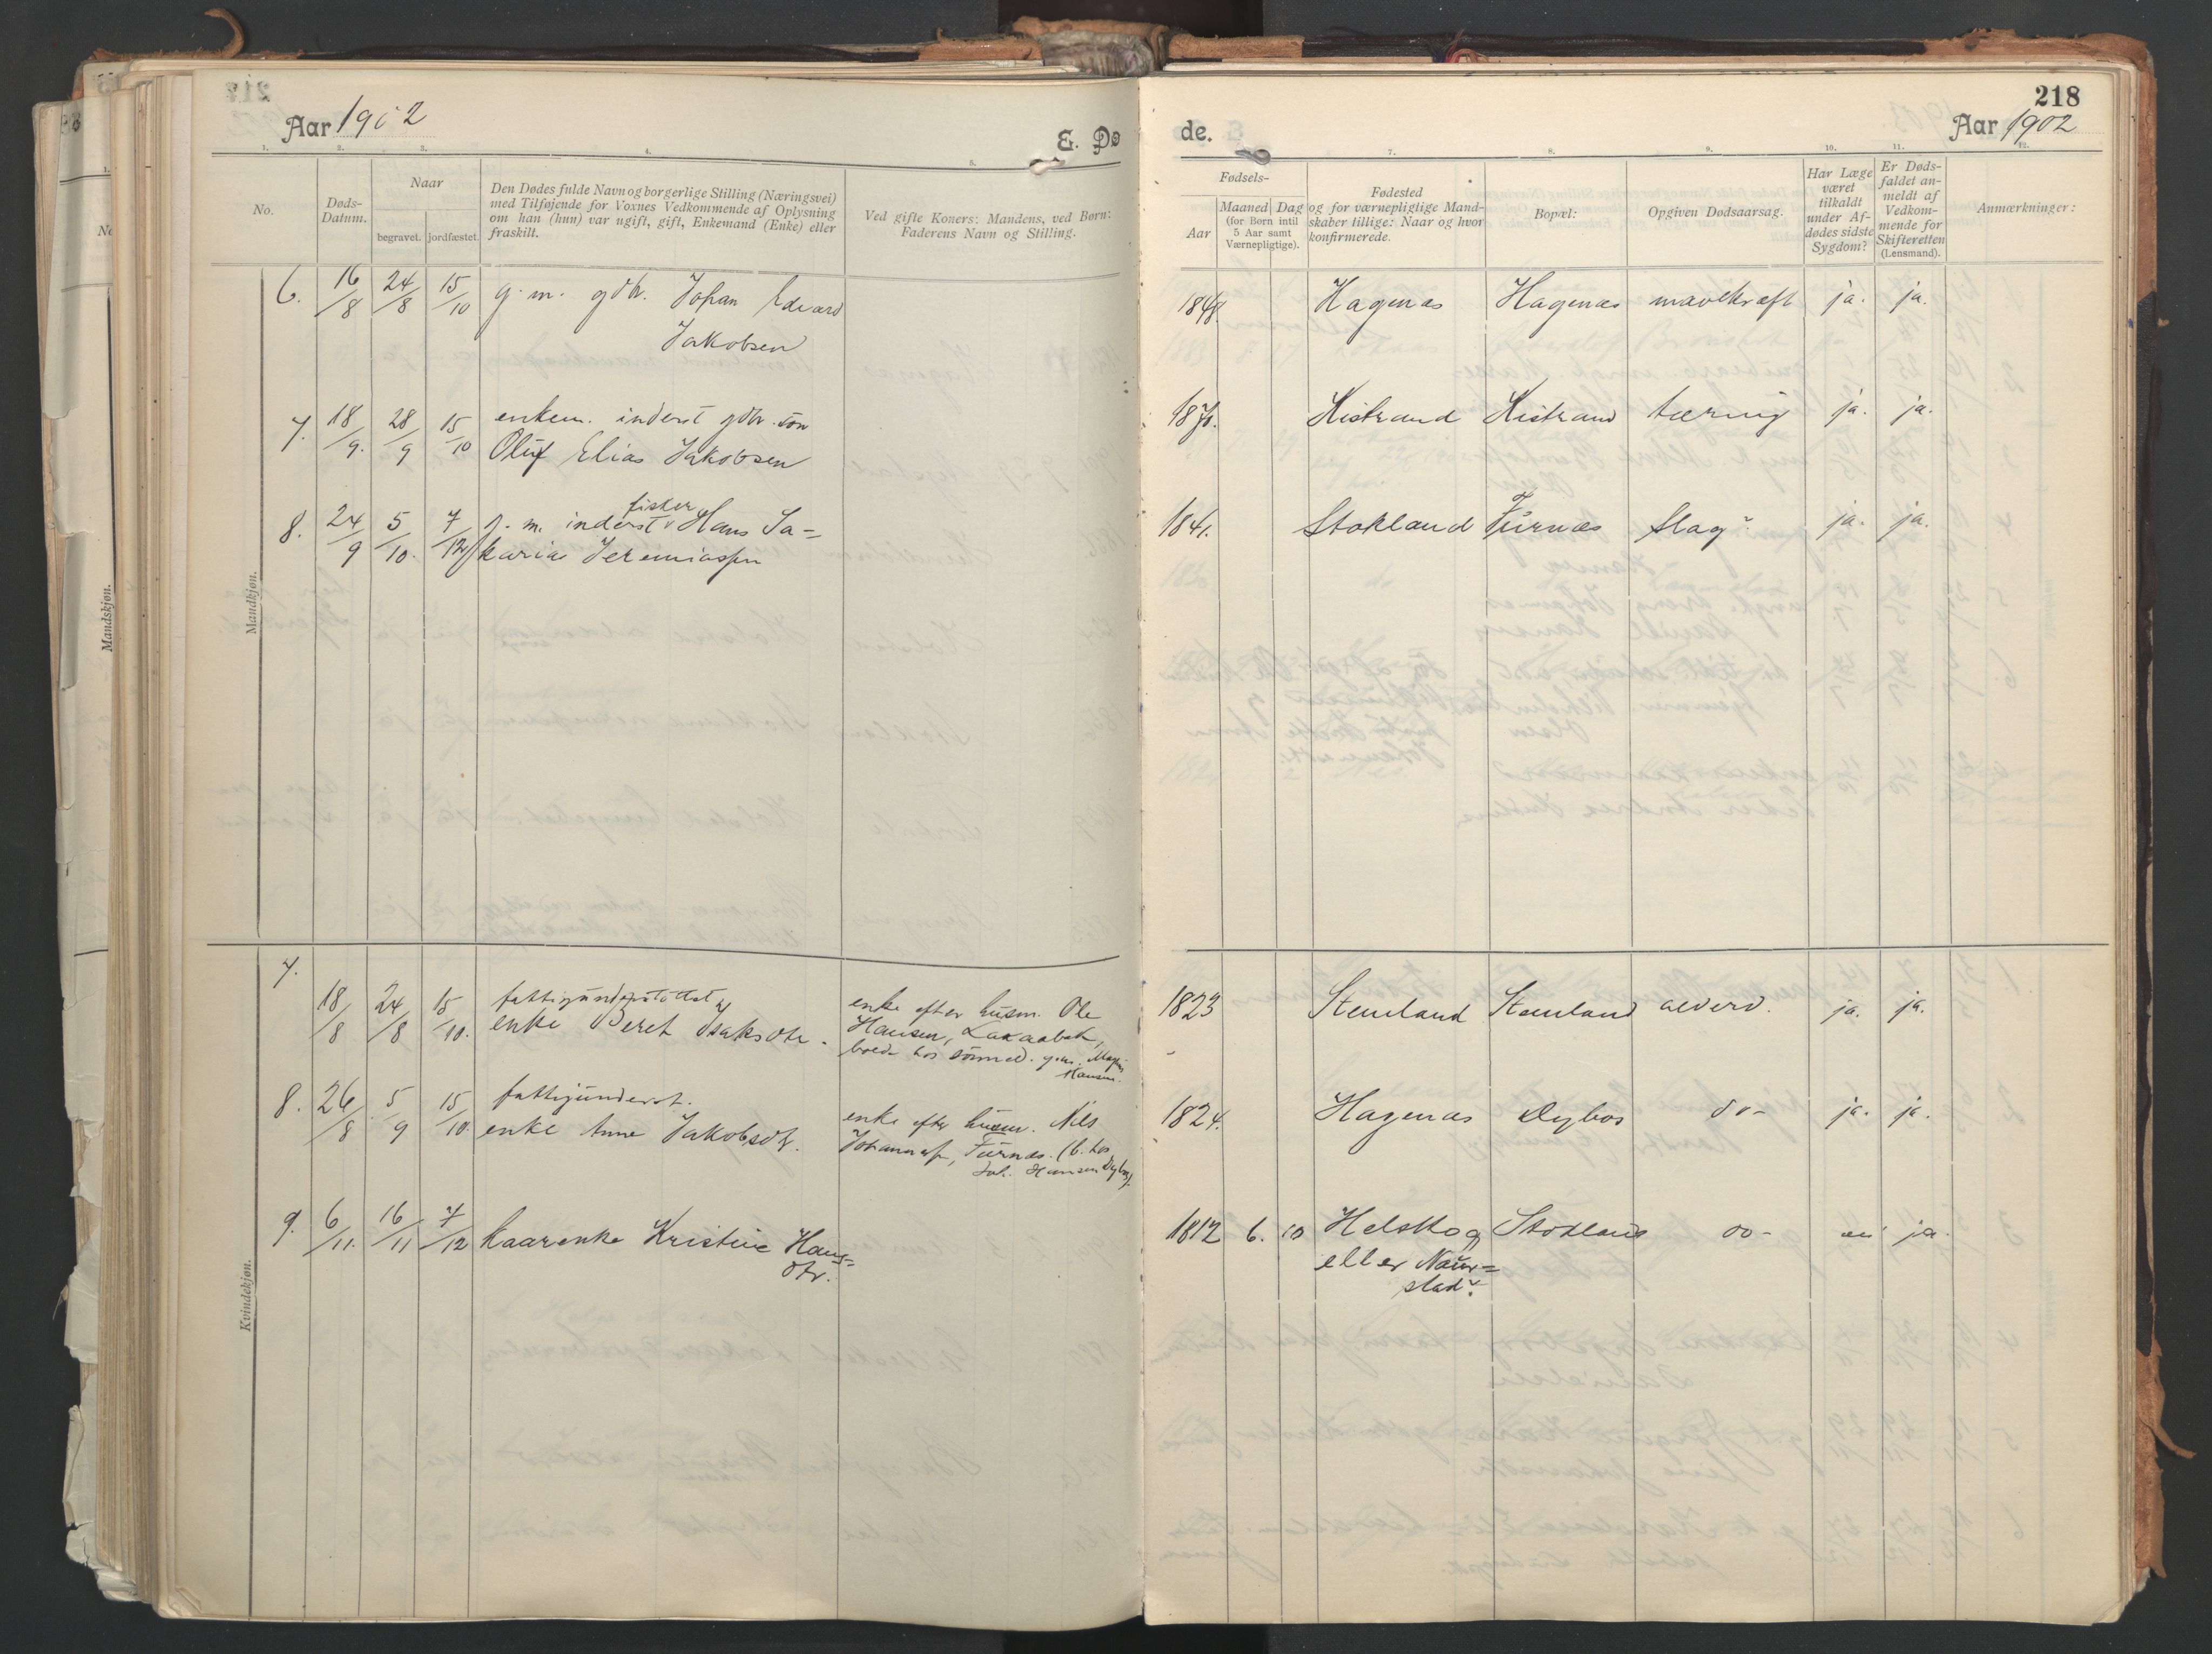 Aar 1902
E. Dø
No.
Døds-
Datum.
Naar
begravet.
jordfæstet.
Den Dødes fulde Navn og borgerlige Stilling (Næringsvei)
med Tilføjende for Voxnes Vedkommende af Oplysning
om han (hun) var ugift, gift, Enkemand (Enke) eller
fraskilt.
Ved gifte Koners: Mandens, ved Børn:
Faderens Navn og Stilling.
Mandkjøn.
6. 16/8 24/8 15/10 g. m. gdbr. Johan Edvard
Jakobsen
7. 18/9. 28/9 15/10 enkem. inderst gdbr. søn
Oluf Elias Jakobsen
8. 24/9 5/10. 7/12 g. m. inderst fisker Hans Sa=
karia Jeremiassen
Kvindekjøn.
7.
18/8 24/8 15/10. fattigunderstøttet
enke Beret Isaksdtr.
enke efter husm. Ole
Hansen,
boede hos
Hansen.
8. 26/8 5/9 15/10 fattigunderst.
enke Anne Jakobsdtr.
enke efter husm. Nils
Johannesen, Furnes. (b. hos
Joh. Hansen Dybos).
9. 6/11. 16/11 7/12 kaarenke Kristine Hans=
dtr.
Mandskjøn.
218
de.
Aar 1902
Fødsels-
Aar
Maaned
(for Børn intil
5 Aar samt
Værnepligtige).
Dag
Fødested
og for værnepligtige Mand-
skaber tillige: Naar og hvor
konfirmerede.
Bopæl:
Opgiven Dødsaarsag.
Har Læge
været
tilkaldt
under Af-
dødes sidste
Sygdom?
Er Døds-
faldet an-
meldt af
Vedkom-
mende for
Skifteretten
(Lensmand).
Anmærkninger:
1848. Hagenes Hagenes mavekræft ja. ja.
1870. Kistrand Kistrand tæring ja. ja.
1841. Stokland Furnes Slag? ja. ja.
1823 Stenland Stenland alderd. ja. ja.
1824. Hagenes Dybos do- ja. ja.
1812 6. 10 Helskog Stokland do- nei ja.
eller Naur=
stad?